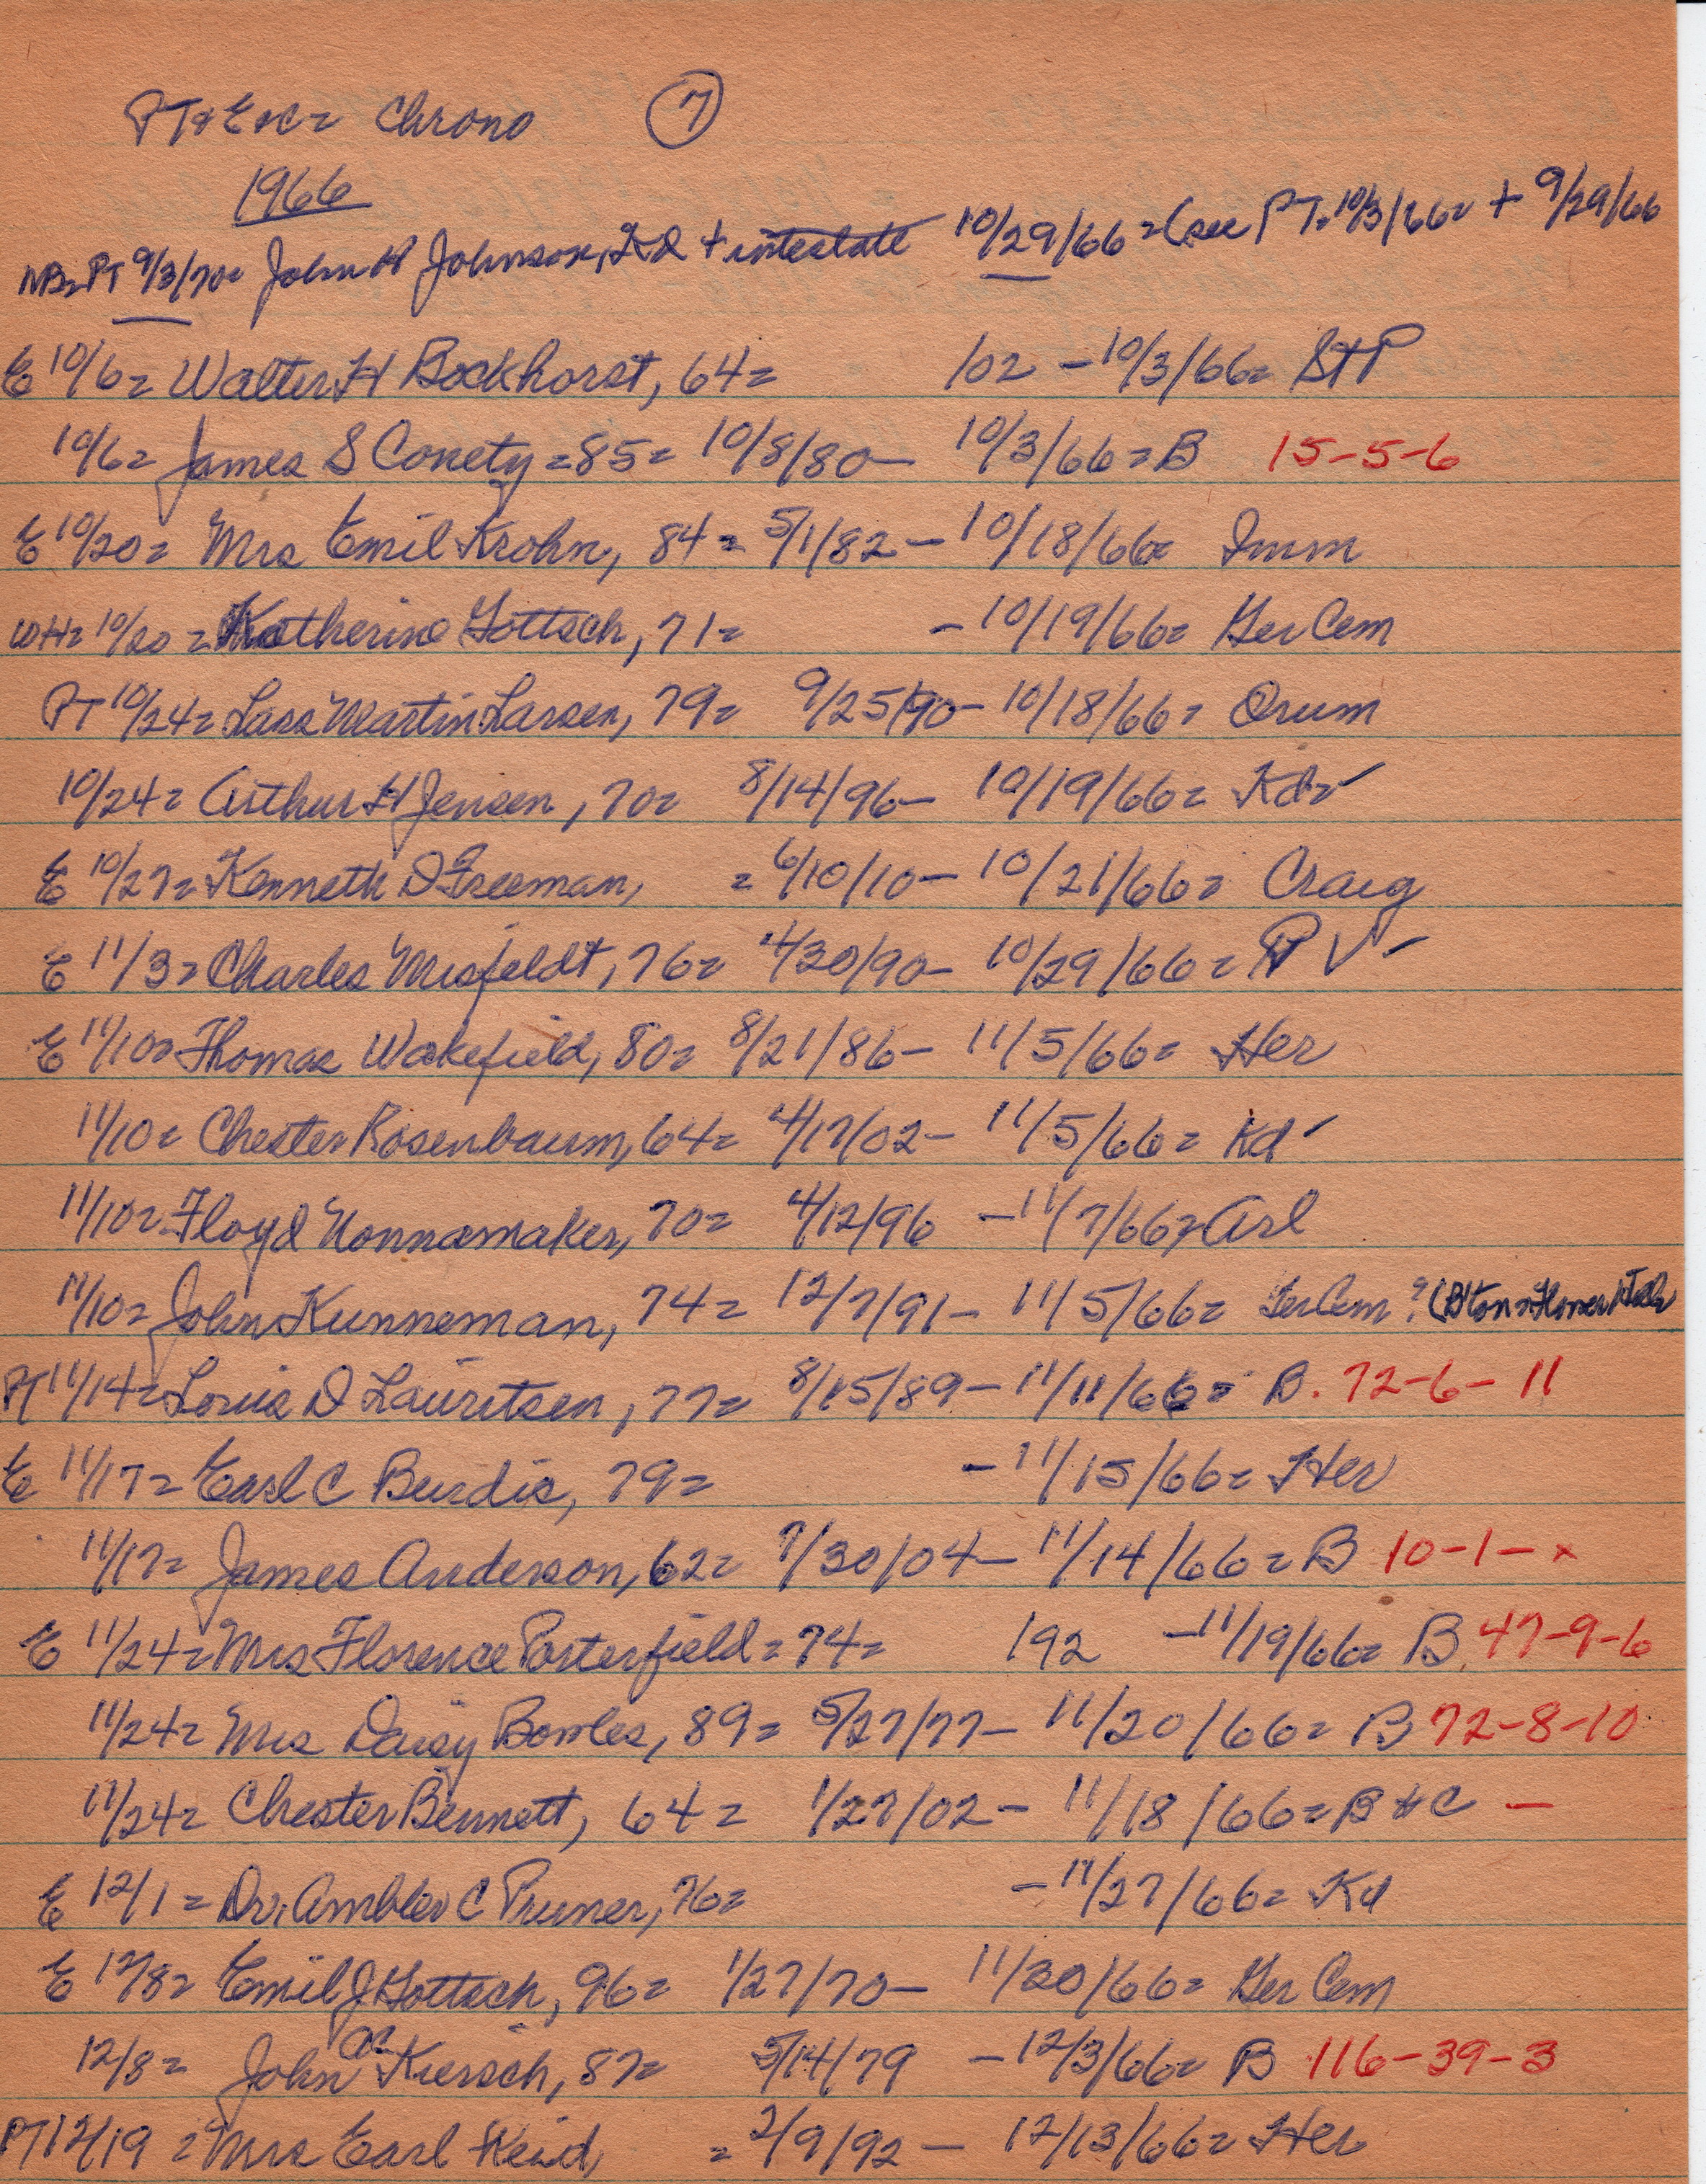 PT & E et C = Chrono 7
1966
NB = PT 9/3/70 = John H Johnson, + intestate 10/29/66 = (see PT = 10/3/66 = + 9/29/66
E 10/6 = Walter H Bockhorst, 64 = 102 - 10/3/66 = StP
10/6 = James S Conety = 85 = 10/8/80 - 10/3/66 = B 15-5-6
E 10/20 = Mrs Emil Krohn, 84 = 5/1/82 - 10/18/66 = Imm
WH = 10/20 = Katherine Gottsch, 71 = - 10/19/66 = Ger Cem
PT 10/24 = Lars Martin Larsen, 79 = 9/25/90 - 10/18/66 = Orum
10/24 = Arthur H Jensen, 70 = 8/14/96 - 10/19/66 = Kd ✓
E 10/27 = Kenneth D Freeman, = 6/10/10 - 10/21/66 = Craig
E 11/3 = Charles Misfeldt, 76 = 4/30/90 - 10/29/66 = P V -
E 11/10 = Thomas Wakefield, 80 = 8/21/86 - 11/5/66 = Her
11/10 = Chester Rosenbaum, 64 = 4/17/02 - 11/5/66 = Kd ✓
11/10 = Floyd Nonnamaker, 70 = 4/12/96 - 11/7/66 = Arl
11/10 = John Kunneman, 74 = 12/7/91 - 11/5/66 = Ger Cem ? (B'ton =
PT 11/14 = Louis D Lauritsen, 77 = 8/15/89 - 11/11/66 = B. 72-6-11
E 11/17 = Earl C Burdic, 79 = - 11/15/66 = Her
11/17 = James Anderson, 62 = 7/30/04 - 11/14/66 = B 10-1-x
E 11/24 = Mrs Florence Porterfield = 74 = 192 - 11/19/66 = B 47-9-6
11/24 = Mrs Daisy Bowles, 89 = 5/27/77 - 11/20/66 = B 72-8-10
11/24 = Chester Bennett, 64 = 1/27/02 - 11/18/66 = B & C -
E 12/1 = Dr. Ambler C Pruner, 76 = - 11/27/66 = Kd
E 12/8 = Emil J Gottsch, 96 = 1/27/70 - 11/30/66 = Ger Cem
12/8 = John AC Kiersch, 87 = 5/14/79 - 12/3/66 = B 116-39-3
PT 12/19 = Mrs Earl Reid, = 2/9/92 - 12/13/66 = Her